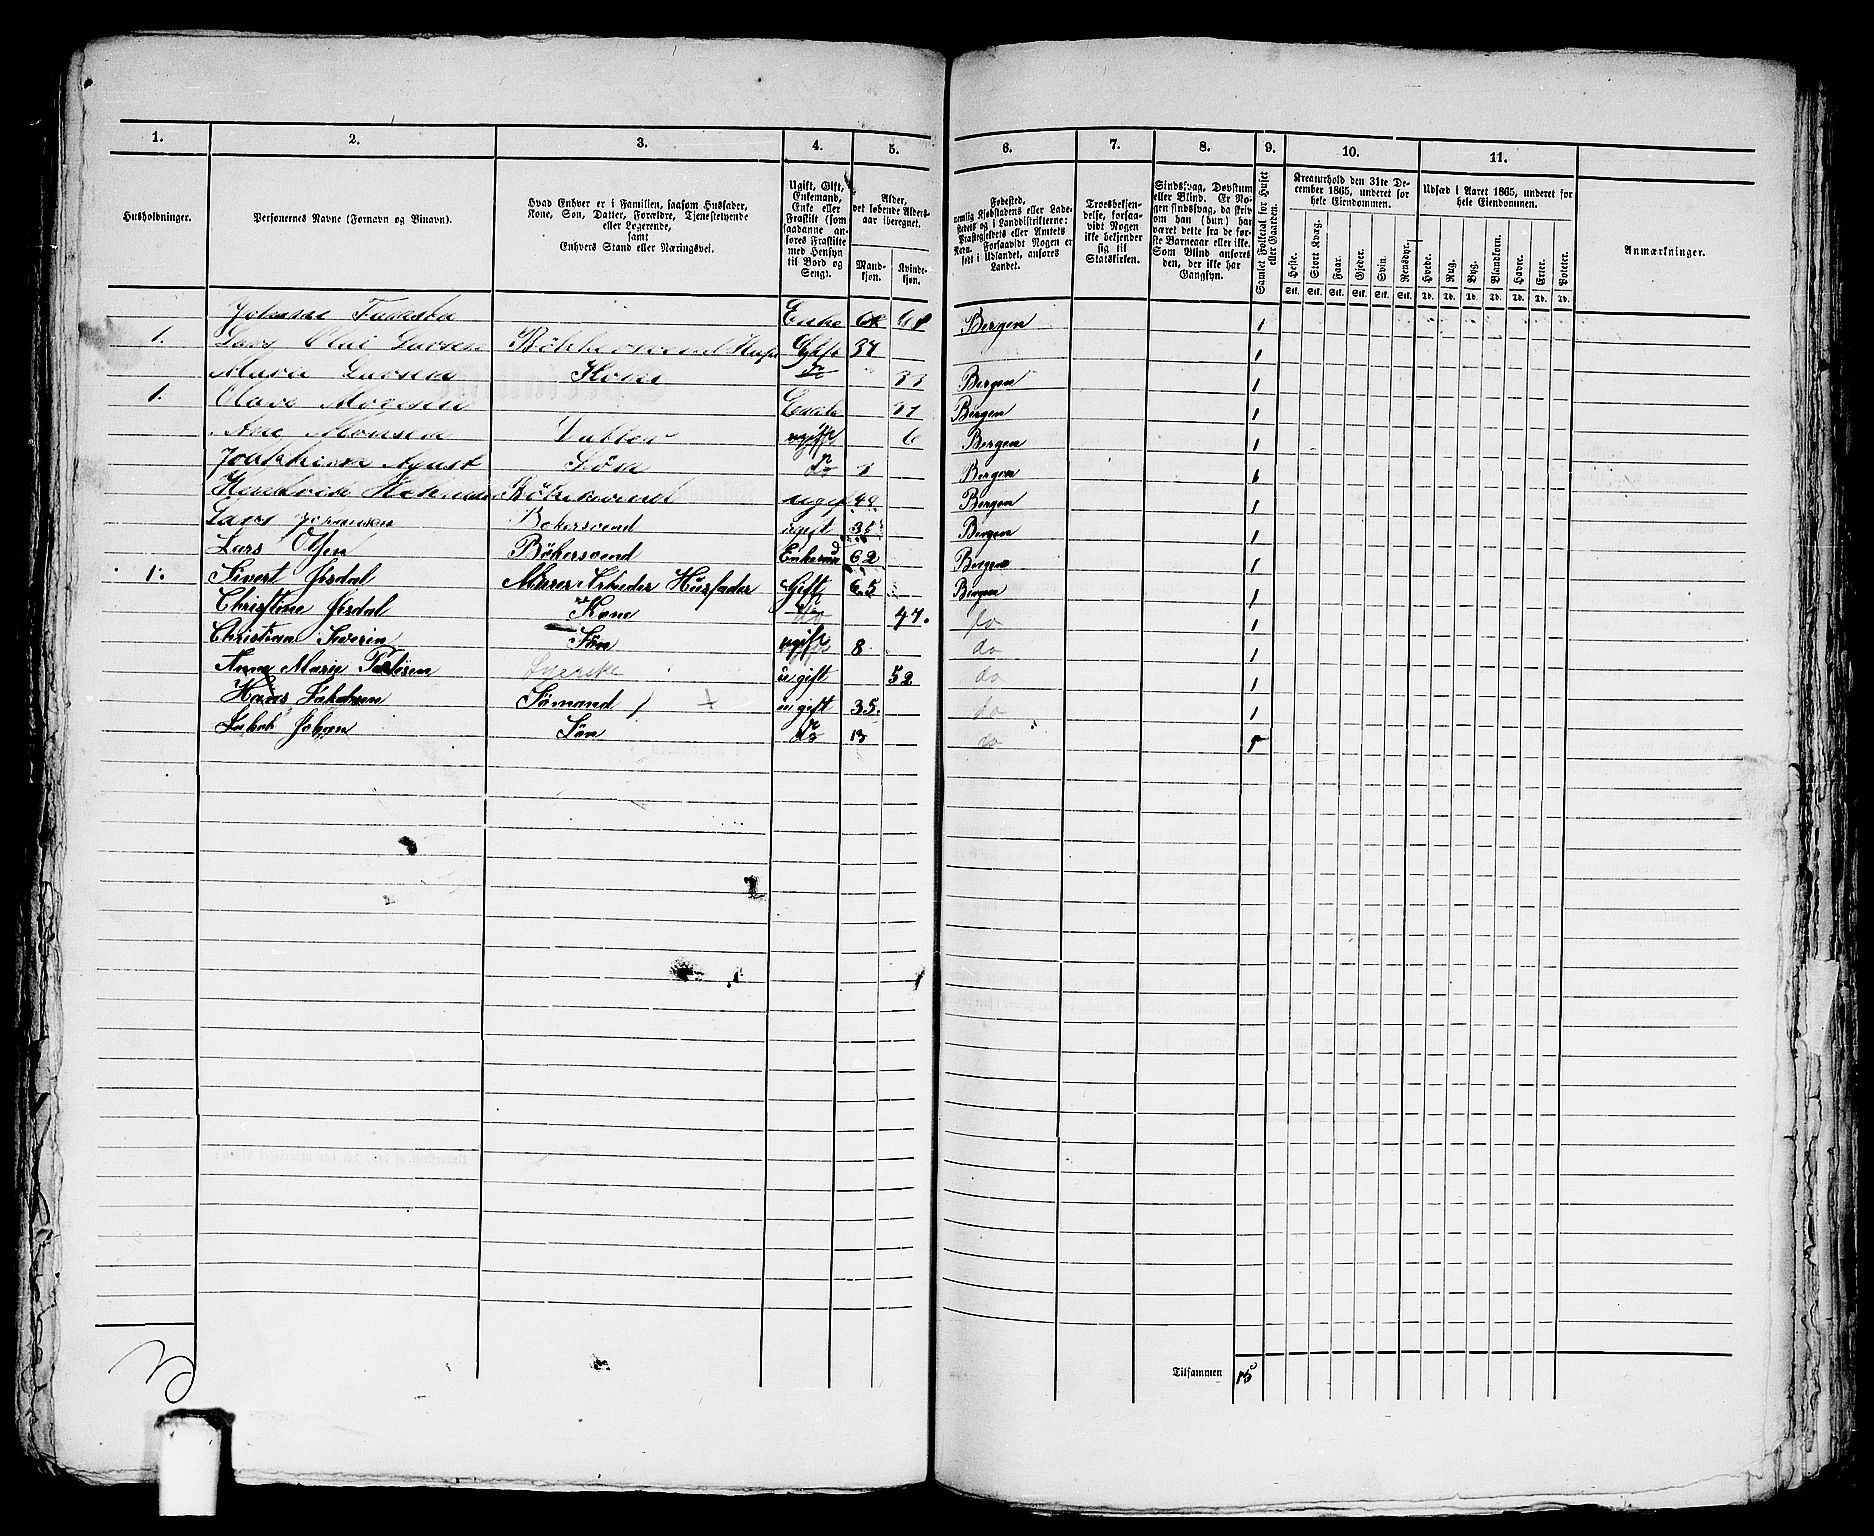 1. 2. 3. 4. 5. 6. 7. 8. 9. 10. 11.
Husholdninger.
Personernes Navne (Fornavn og Binavn).
Hvad Enhver er i Familien, saasom Husfader, Kone, Søn, Datter, Forældre, Tjenestetyende eller Logerende, samt Enhvers Stand eller Næringsvei.
Ugift, Gift, Enkemand, Enke eller Fraskilt (som saadanne anføres Fraskilte med Hensyn til Bord og Seng).
Alder, det løbende Aldersaar iberegnet.
Mandkjøn. Kvindekjøn.
Fødested, nemlig Kjøbstadens eller Ladestedets og i Landdistrikterne: Præstegjeldets eller Amtets Navn. Forsaavidt Nogen er født i Udlandet, anføres Landet.
Troesbekjendelse, forsaavidt Nogen ikke bekjender sig til Statskirken.
Sindssvag, Døvstum eller Blind. Er Nogen sindssvag, da skriv om han (hun) har været dette fra de første Barneaar eller ikke. Som Blind anføres den, der ikke har Gangsyn.
Samlet Folketal for Huset eller Gaarden.
Kreaturhold den 31te December 1865, underet for hele Eiendommen.
Heste. Stort Kvæg. Faar. Gjeder. Svin. Rensdyr.
Stk. Stk. Stk. Stk. Stk. Stk.
Udsæd i Aaret 1865, underet for hele Eiendommen.
Hvede. Rug. Byg. Blandkorn. Havre. Erter. Poteter.
Td. Td. Td. Td. Td. Td. Td.
Anmærkninger.
Enke Bergen 1
1. Lars Olai Larsen Gift 37 1
Maria Larsen Kone do 33 Bergen 1
1. Olava Monsen Enke 31 Bergen 1
Ane Monsen Datter ugift 6 Bergen 1
Søn do 1 Bergen
Hendrik ugift 49 Bergen 1
Lars Johnsen Bøkersvend ugift 35 Bergen 1
Lars Olsen Bøkersvend Enkemand 62 Bergen 1
1. Sivert Øisdal Murer Arbeider Husfader Gift 65 Bergen 1
Christine Øisdal Kone do 47. do 1
Christian Severin Søn ugift 8 do 1
Anne Marie ugift 52 do 1
Hans Jakobsen Sømand ugift 35. do 1
Jakob Johan Søn do 13 do 1
Tilsammen 15
3